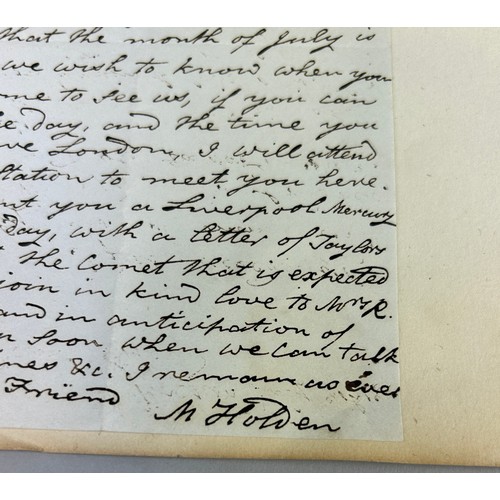 that the month of July is
we wish to know when you
me to see us, if you can
he day, and the time you
ve London, I will attend
Station to meet you here.
nt you a Liverpool Mercury
day, with a letter of Taylors
t the Comet that is expected
join in kind love to Mrs R.
and in anticipation of
n soon when we can talk
nes &c. I remain as ever
Friend
M Holden